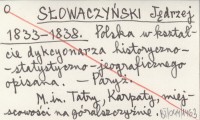 SŁOWACZYŃSKI Jędrzej
1833-1838. Polska w kształ-
cie dykcyonarza historyczno-
-statystyczno-jeograficznego
opisana. - Paryż.
M.in. Tatry, Karpaty, miej-
scowości na góralszczyźnie.